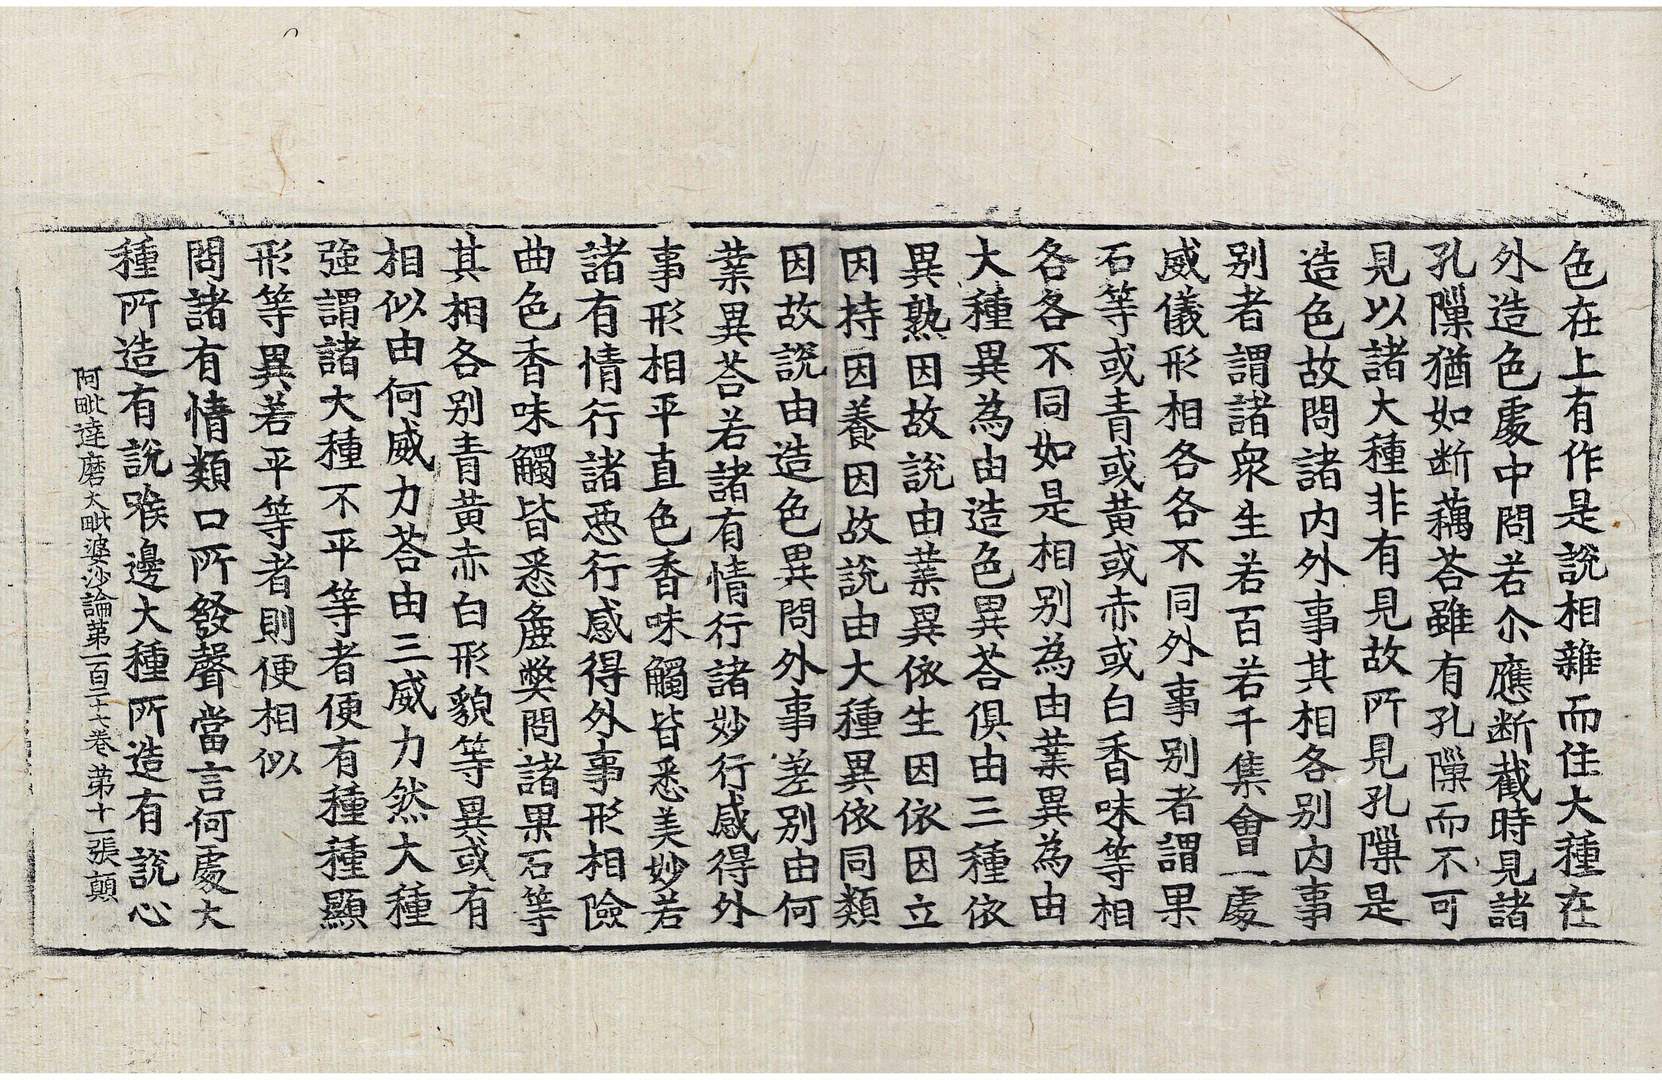 色在上有作是說相雜而住大種在
外造色處中問若尒應断截時見諸
孔隟猶如断藕荅雖有孔隟而不可
見以諸大種非有見故所見孔隟是
造色故問諸内外事其相各別内事
別者謂諸衆生若百若千集會一處
威儀形相各各不同外事別者謂果
石等或青或黄或赤或白香味等相
各各不同如是相別為由業異為由
大種異為由造色異荅俱由三種依
異熟因故說由業異依生因依因立
因持因養因故說由大種異依同類
因故說由造色異問外事差別由何
業異荅若諸有情行諸妙行感得外
事形相平直色香味觸皆悉美妙若
諸有情行諸恶行感得外事形相險
曲色香味觸皆悉麁弊問諸果石等
其相各別青黄赤白形貌等異或有
相似由何威力荅由三威力然大種
強謂諸大種不平等者便有種種顯
形等異若平等者則便相似
問諸有情類口所發聲當言何處大
種所造有說喉邊大種所造有說心
阿毗達磨大毗婆沙論第一百二十七卷 第十一張 顛